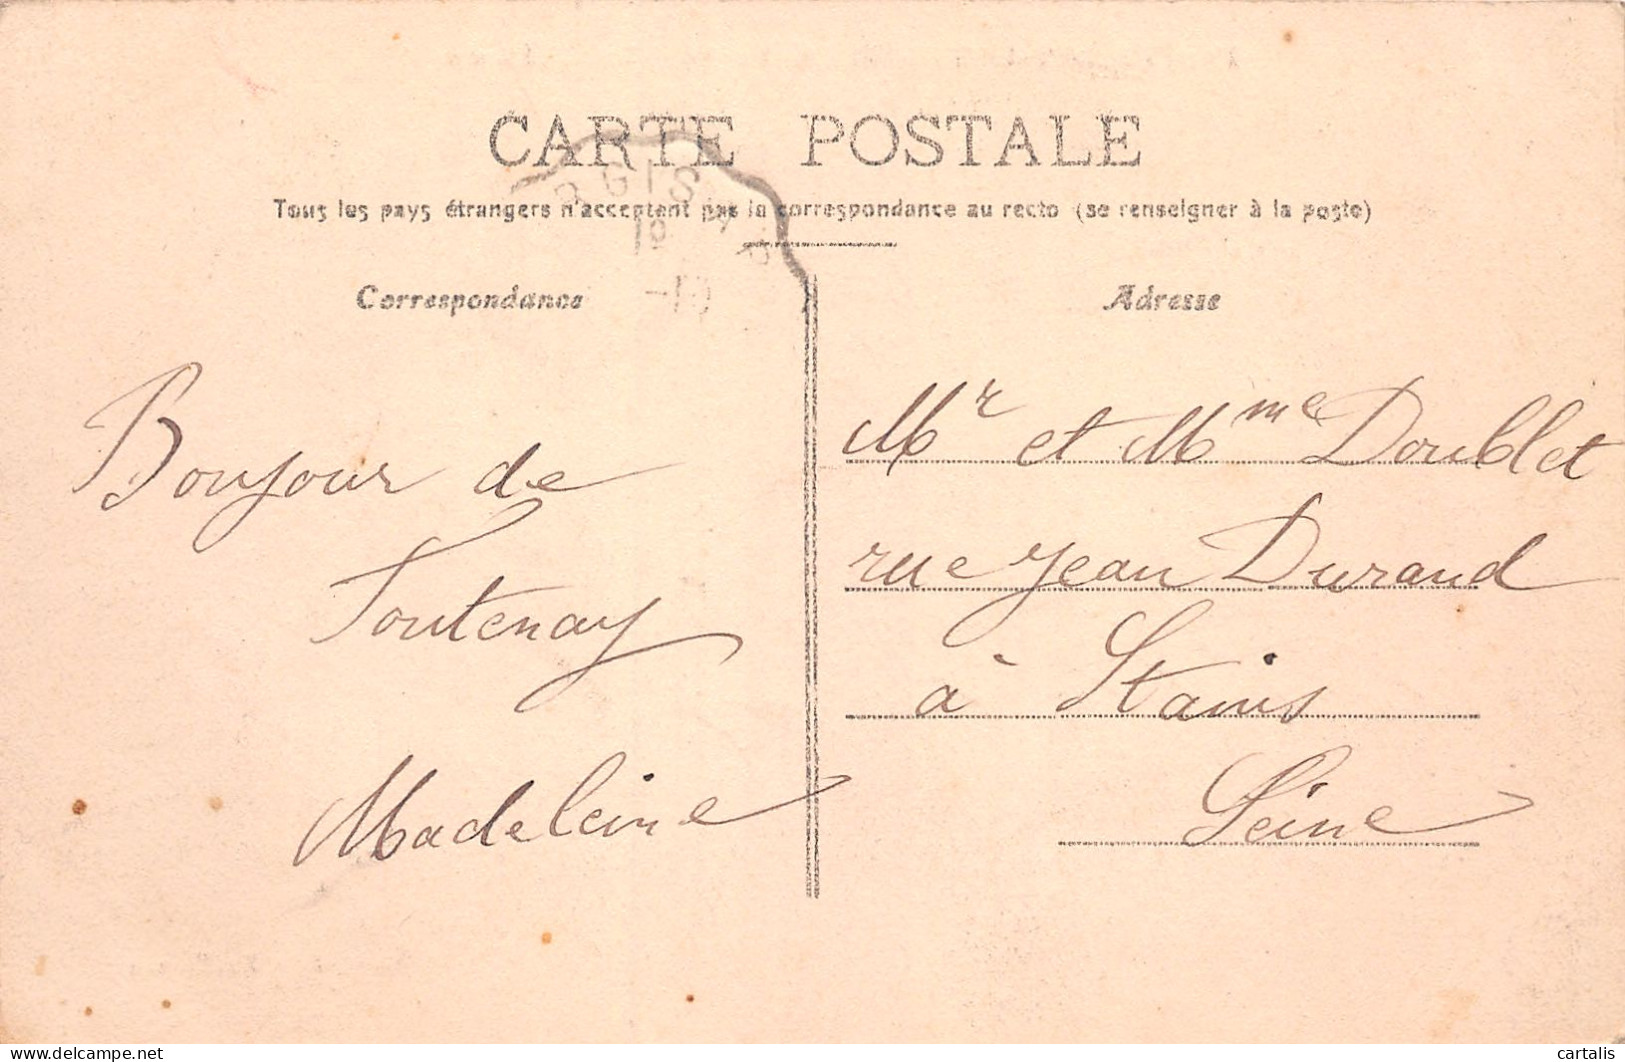 CARTE POSTALE
Tous les pays étrangers n'acceptent pas la correspondance au recto (se renseigner à la poste)
Correspondance
Bonjour de
Fontenay
Madeleine
Adresse
Mr et Mme Doublet
rue Jean Durand
à Stains
Seine
delcampe.net
cartalis